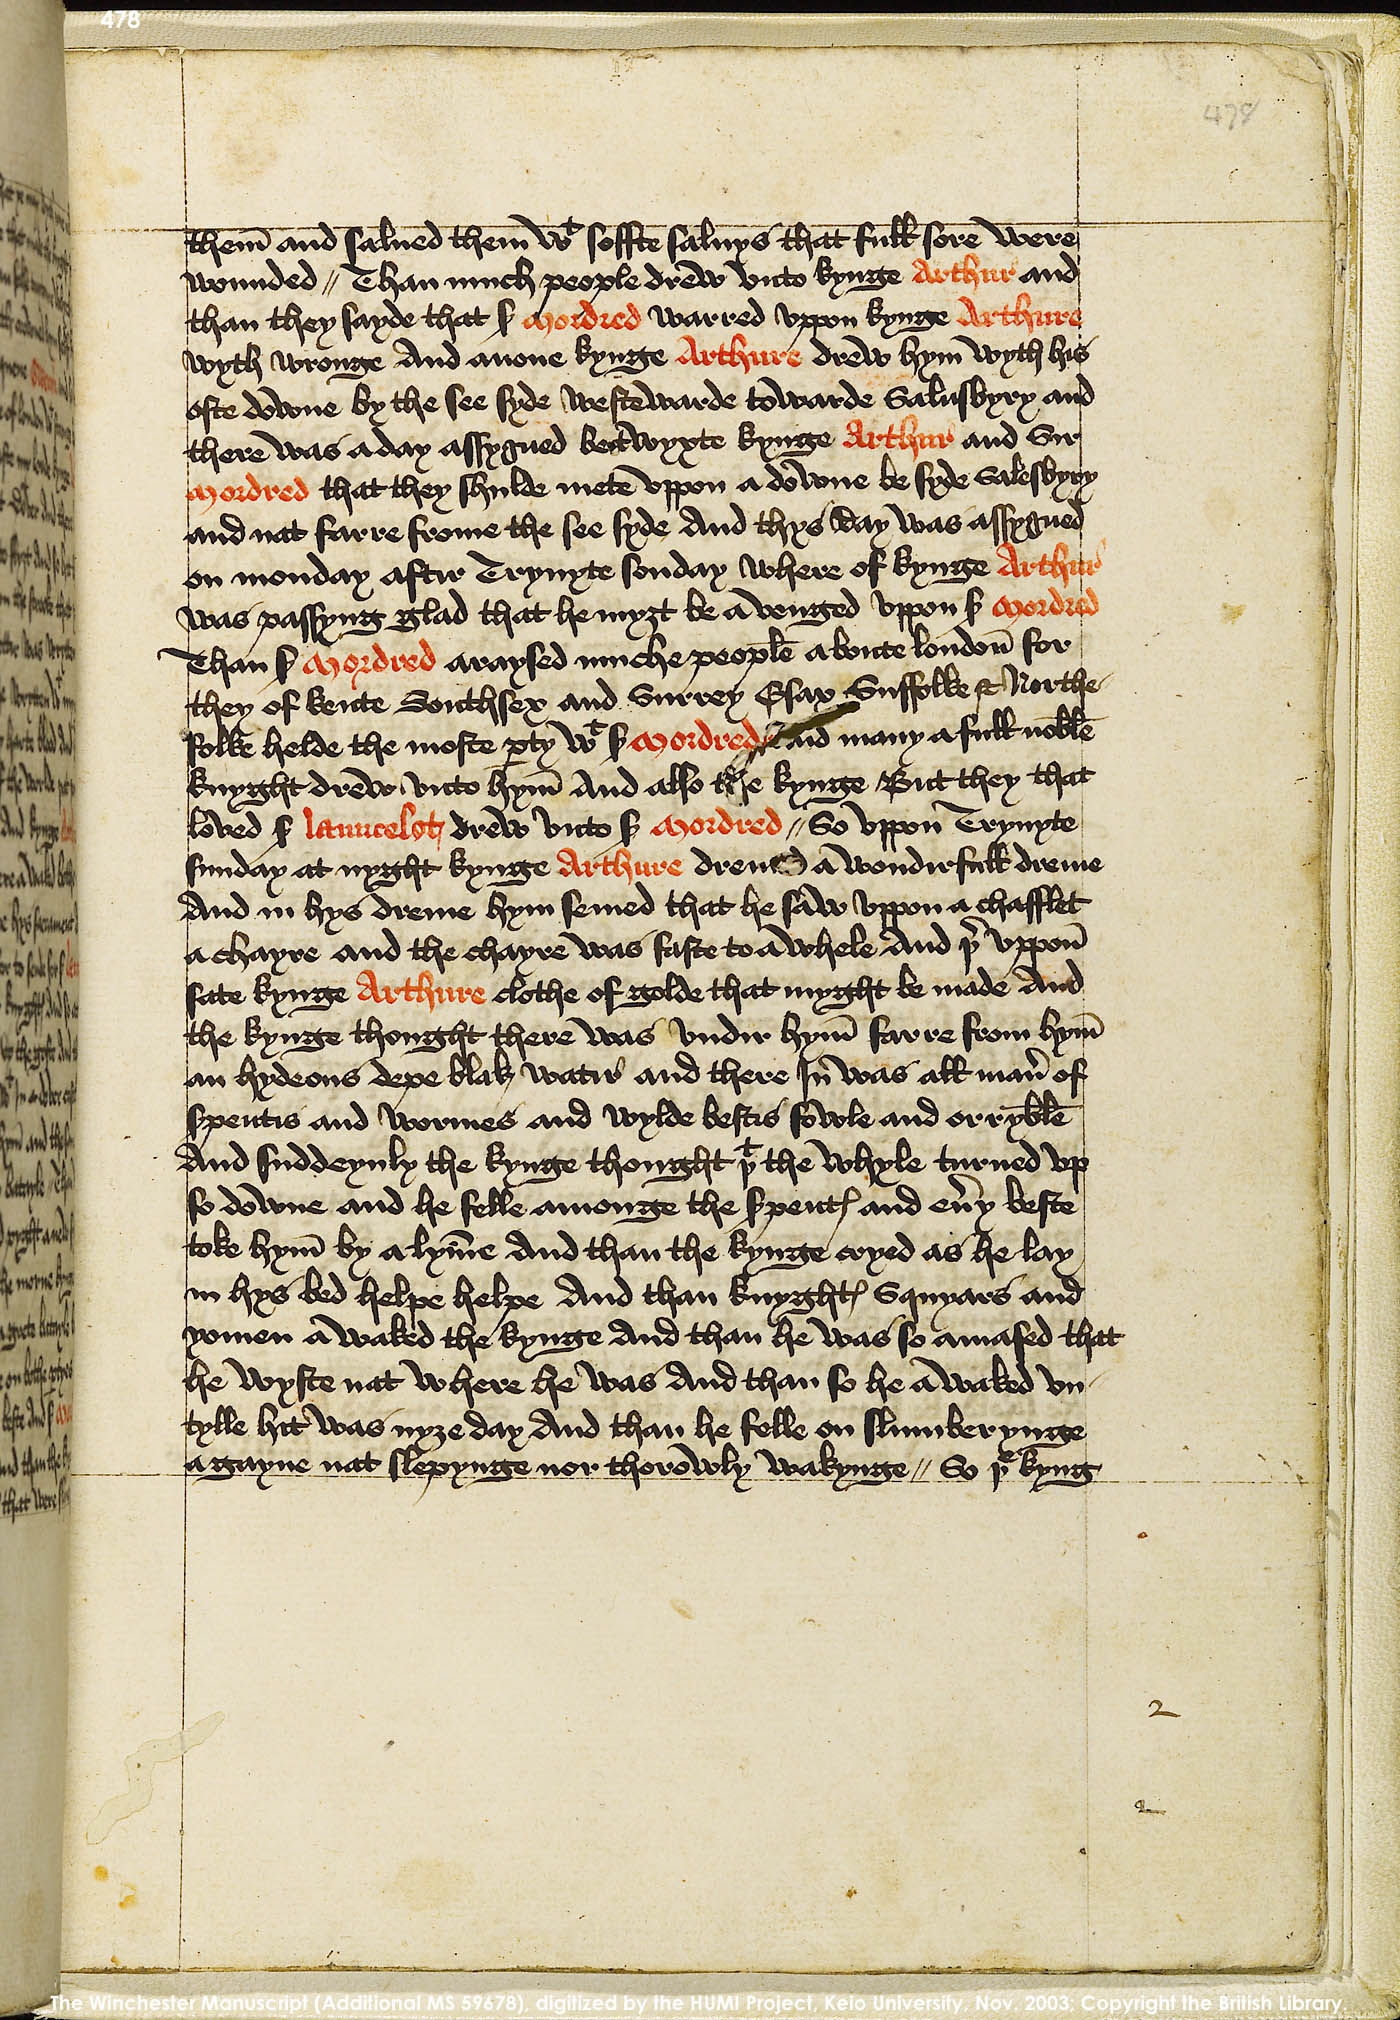 478
478
them̄ and salued them wᵗ soffte saluys that full sore were
wounded // Than much people drew vnto kynge Arthur and
than they sayde that s̛ Mordred warred vppon kynge Arthure
wyth wronge And anone kynge Arthure drew hym̄ wyth his
oste downe by the see syde westewarde towarde Salusbyry and
there was a day assygned betwyxte kynge Arthur and Sir
Mordred that they shulde mete vppon a downe be syde Salesbyry
and nat farre frome the see syde And thys day was assygned
on monday aftir Trynyte sonday where of kynge Arthur
was passyng glad that he myȝt be a venged vppon s̛ Mordred
Than s̛ Mordred araysed muche people a boute london̄ for
they of kente Southsex and Surrey Esax Suffolke & Northe
folke helde the moste ꝑty wᵗ s̛ Mordred And many a full noble
knyght drew vnto hym̄ And also the kynge But they that
loved s̛ launcelot drew vnto s̛ Mordred // So vppon Trynyte
sunday at nyght kynge Arthure dremed a wondirfull dreme
And in hys dreme hym semed that he saw vppon a chafflet
a chayre and the chayre was faste to a whele And þ̛ vppon̄
sate kynge Arthure clothe of golde that myght be made And
the kynge thought there was vndir hym̄ farre from hym̄
an hydeous depe blak watir and there In̄ was all man̛ of
s̛pentis and wormes and wylde bestis fowle and orryble
And suddeynly the kynge thought þᵗ the whyle turned vp
so downe and he felle amonge the s̛pentꝭ and eưy beste
toke hym̄ by a lym̄e And than the kynge cryed as he lay
in hys bed helpe helpe And than knyghtꝭ Squyars and
yomen a waked the kynge And than he was so amased that
he wyste nat where he was And than so he a waked vn
tylle hit was nyȝe day And than he felle on slumberynge
a gayne nat slepynge nor thorowly wakynge // So þᵉ kyng
2
2
The Winchester Manuscript (Additional MS 59678), digitized by the HUMI Project, Keio University, Nov. 2003; Copyright the British Library.